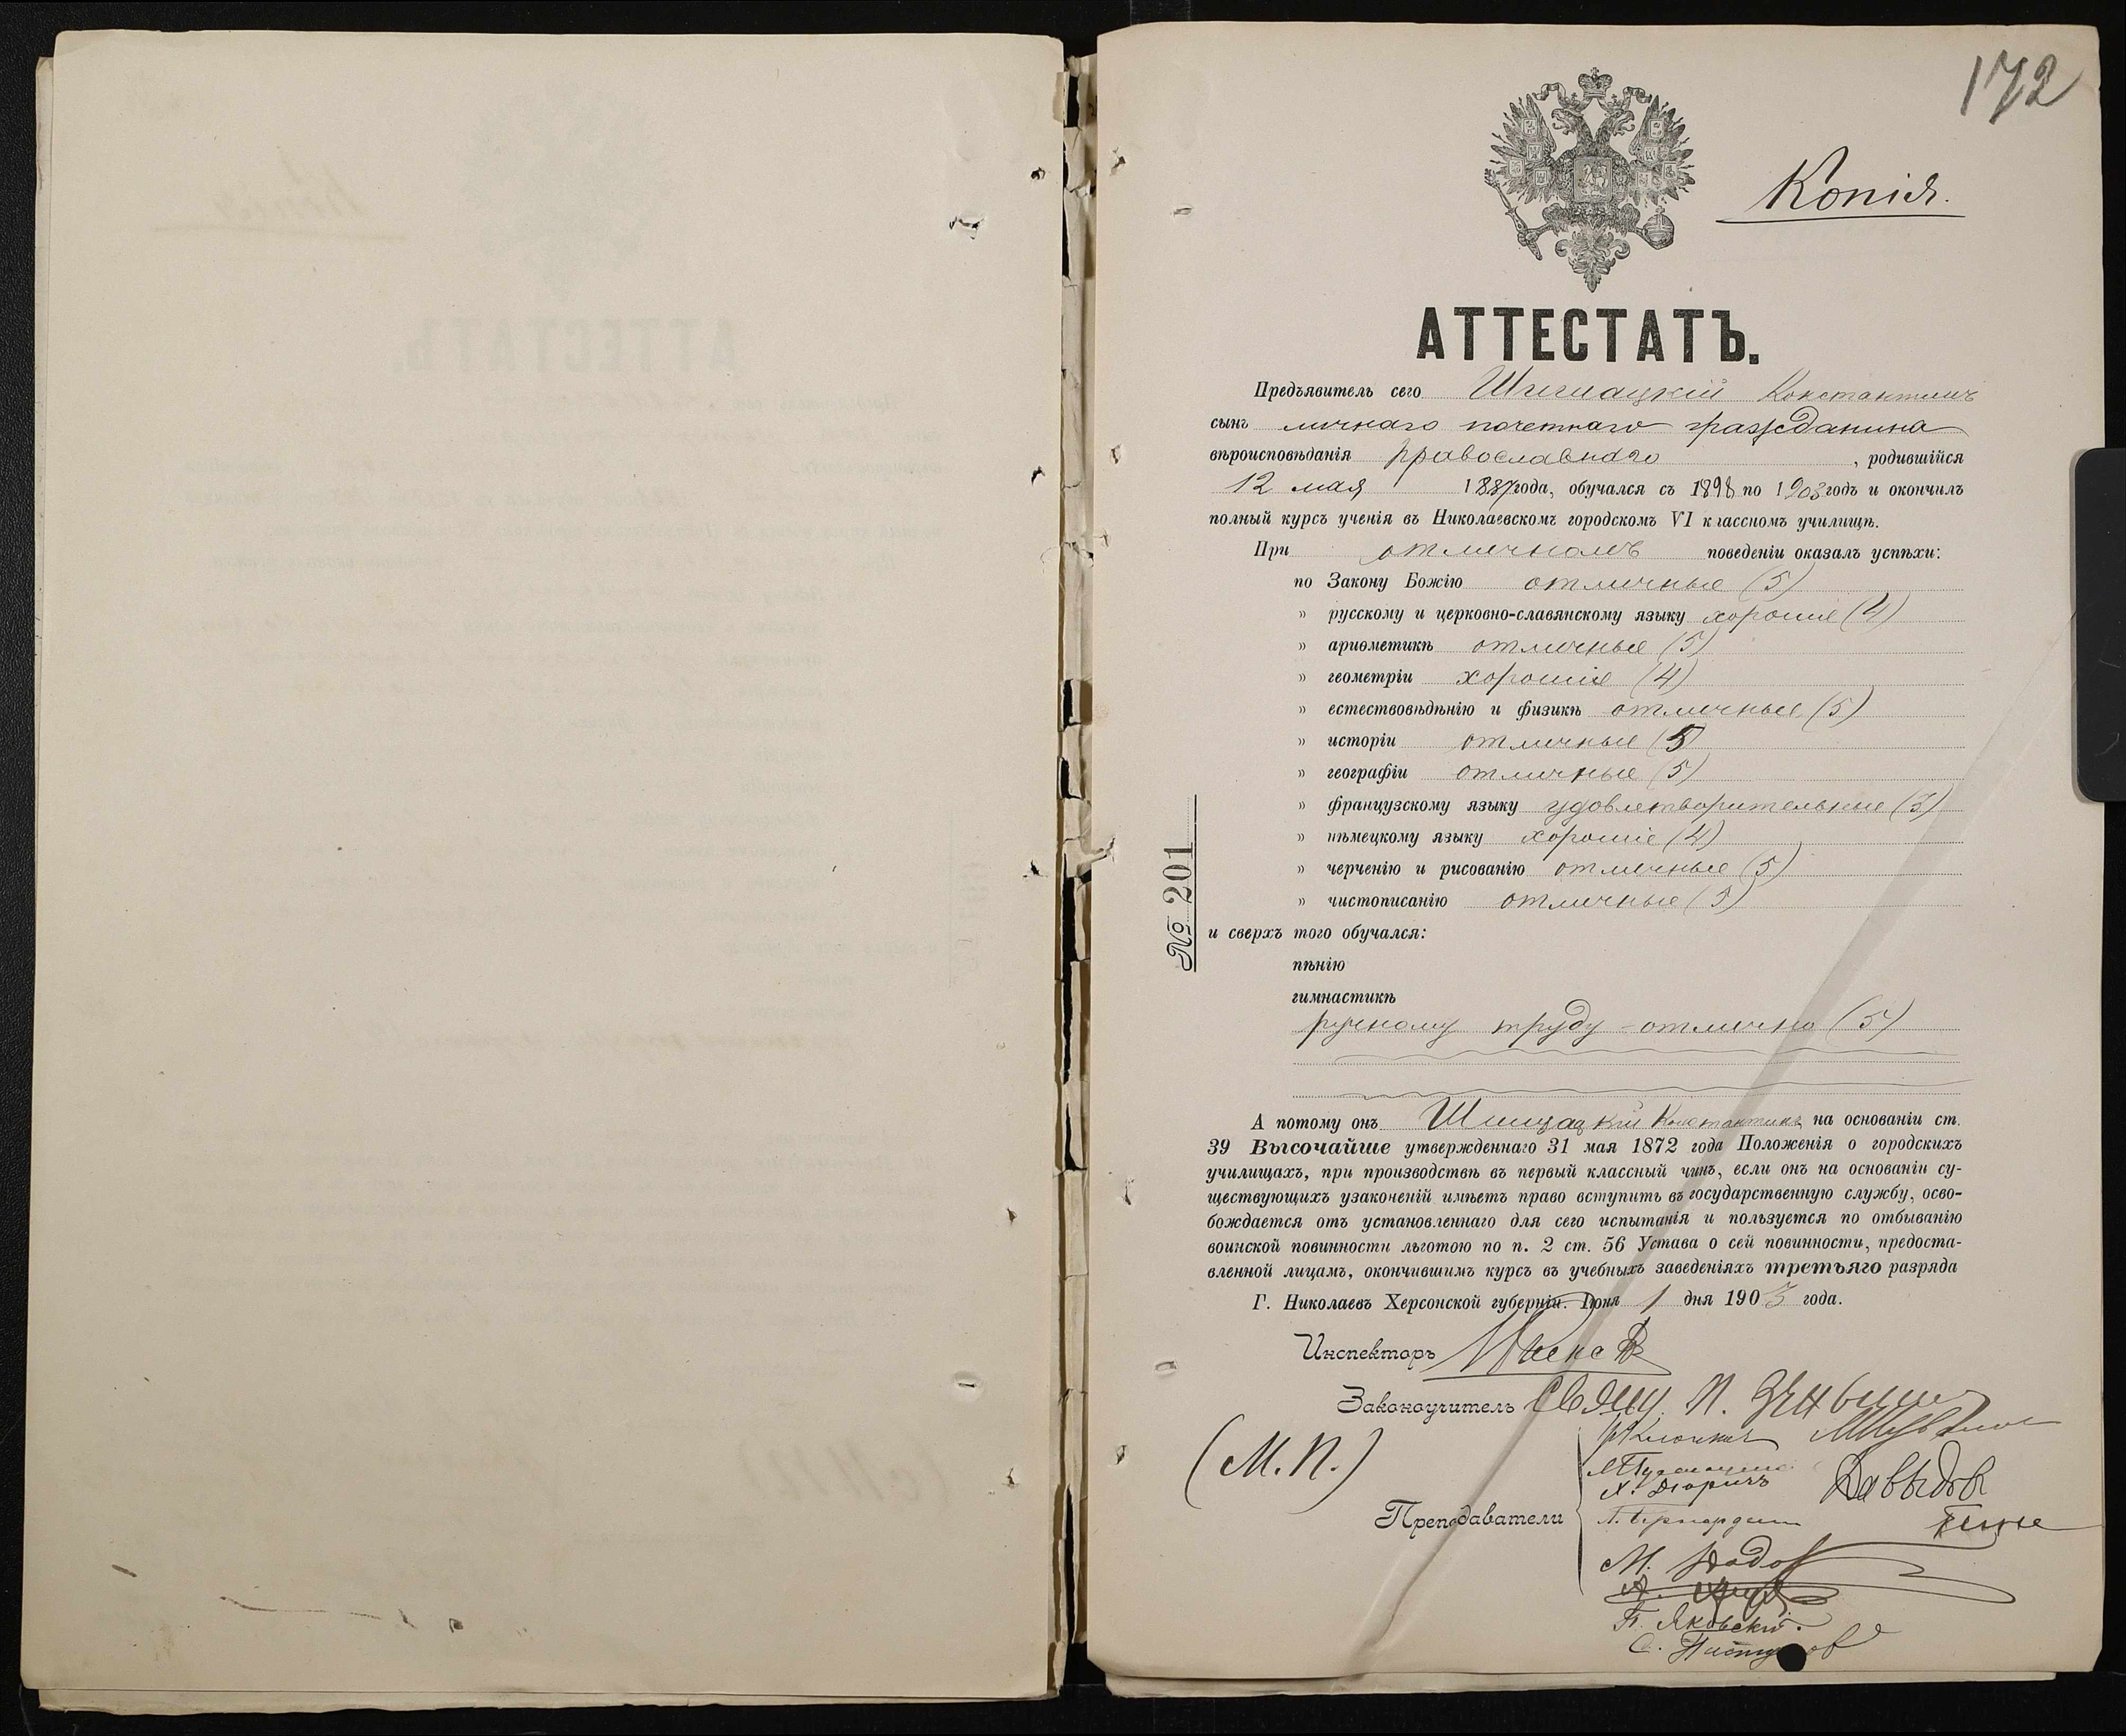 172
Копія.
АТТЕСТАТЪ.
Предъявитель сего Шишацкій Константинъ
сынъ личнаго почетнаго гражданина
вѣроисповѣданія православнаго, родившійся
12 мая 1887 года, обучался съ 1898 по 1903 годъ и окончилъ
полный курсъ ученія въ Николаевскомъ городскомъ VI классномъ училищѣ.
При отличномъ поведеніи оказалъ успѣхи:
по Закону Божію отличные (5)
» русскому и церковно-славянскому языку хорошіе (4)
» ариѳметикѣ отличные (5)
» геометріи хорошіе (4)
» естествовѣдѣнію и физикѣ отличные (5)
» исторіи отличные (5)
» географіи отличные (5)
» французскому языку удовлетворительные (3)
» нѣмецкому языку хорошіе (4)
» черченію и рисованію отличные (5)
» чистописанію отличные (5)
№ 201
и сверхъ того обучался:
пѣнію
гимнастикѣ
ручному труду - отлично (5)
А потому онъ Шишацкій Константинъ на основаніи ст.
39 Высочайше утвержденнаго 31 мая 1872 года Положенія о городскихъ
училищахъ, при производствѣ въ первый классный чинъ, если онъ на основаніи су-
ществующихъ узаконеній имѣетъ право вступить въ государственную службу, осво-
бождается отъ установленнаго для сего испытанія и пользуется по отбыванію
воинской повинности льготою по п. 2 ст. 56 Устава о сей повинности, предоста-
вленной лицамъ, окончившимъ курсъ въ учебныхъ заведеніяхъ третьяго разряда
Г. Николаевъ Херсонской губерніи. Іюня 1 дня 1903 года.
Инспекторъ
Законоучитель Свящ. П.
(М.П.)
Х. Дюричъ
Давыдов
Преподаватели
М.
А.
П. Яковскій.
С.